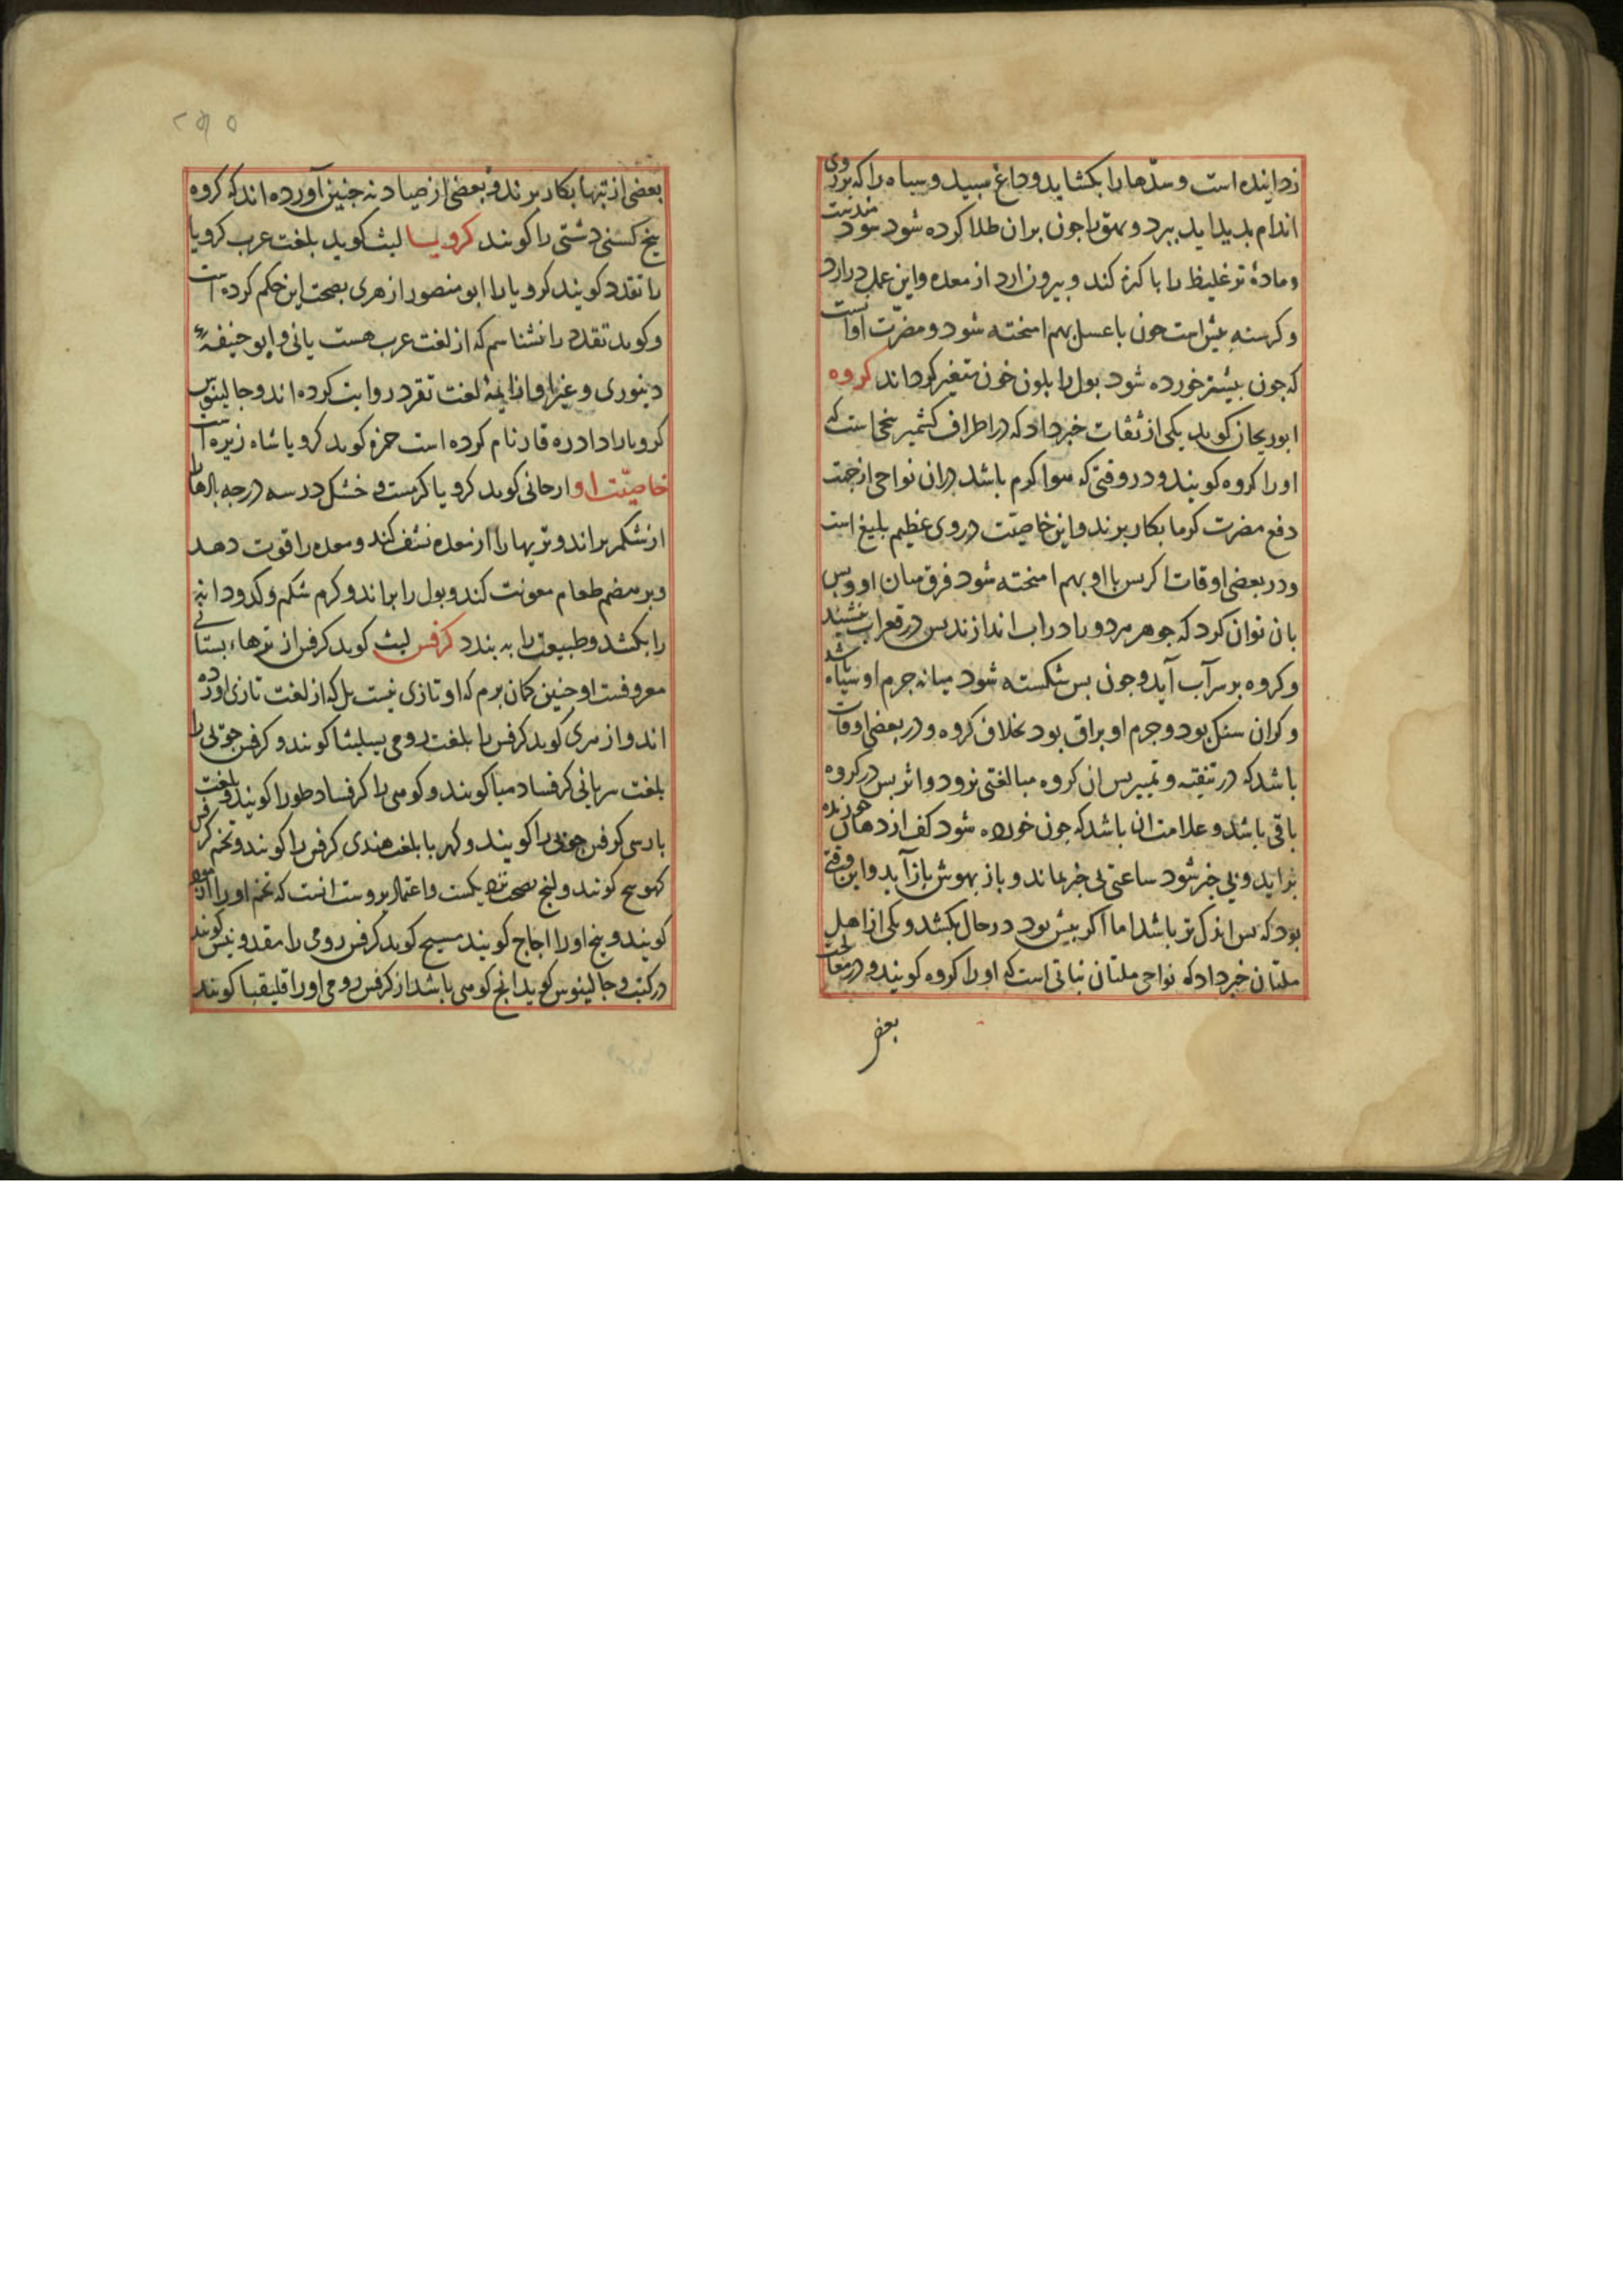 زداینده است و سدّها را بکشاید و داغ سپید و سیاه را که بر روی
اندام بدید اید ببرد و بهق را جون بران طلا کرده شود سود مندست
و مادهٔ تر غلیظ را باکزه کند و بیرون ارد از معده و این عمل در ارد
و کرسنه بیش است جون با عسل بهم امیخته شود و مضرّت او انست
که جون بیشتر خورده شود بول را بلون خون متغیر کرداند کروه
ابوریحان کوید یکی از ثقات خبر داد که در اطراف کشمیر بیخی است که
او را کروه کویند و در وقتی که هوا کرم باشد در ان نواحی از جهت
دفع مضرت کرما بکار برند و این خاصیّت در وی عظیم بلیغ است
و در بعضی اوقات اکر بیس با او بهم امیخته شود فرق میان او و بیس
بان توان کرد که جوهر هر دو را در اب اندازند بیس در قعر اب نشیند
و کروه بر سر آب آید و جون بیس شکسته شود میانه جرم او سیاه باشد
و کران سنک بود و جرم او براق بود بخلاف کروه و در بعضی اوقات
باشد که در تنقیه و تمییز بیس از کروه مبالغتی نرود و اثر بیس در کروه
باقی باشد و علامت ان باشد که جون خورده شود کف از دهان خورنده
براید و بی خبر شود ساعتی بی خبر بماند و باز بهوش باز آید و این وقتی
بود که بیس اندک تر باشد اما اکر بیش بود در حال بکشد و یکی از اهل
ملتان خبر داد که نواحی ملتان نباتی است که او را کروه کویند و در معالجت
بعضی
۲۵۵
بعضی از تبها بکار برند و بعضی از صیادنه جنین آورده اند که کروه
بیخ کسنی دشتی را کویند کرویا لیث کوید بلغت عرب کرویا
را تقدد کویند کرویا را ابو منصور ازهری بصحت این حکم کرده است
و کوید تقدد را نشناسم که از لغت عرب هست یا نی و ابو حنیفهٔ
دینوری و غیر او از ایمهٔ لغت تقرد روایت کرده اند و جالینوس
کرویا را دادره قار نام کرده است حمزه کوید کرویا شاه زیره است
خاصیّت او ارجانی کوید کرویا کرمست و خشک در سه درجه بادها را
از شکم براند و تریها را از معده نشف کند و معده را قوت دهد
و بر هضم طعام معونت کند و بول را براند و کرم شکم و کدو دانه
را بکشد و طبیعت را به بندد کرفس لیث کوید کرفس از ترهاء بستانی
معروفست و جنین کمان برم که او تازی نیست بل که از لغت تازی اورده
اند و از هری کوید کرفس را بلغت رومی بسیلیثا کویند و کرفس جویی را
بلغت سریانی کرفسا دمیا کویند و کوهی را کرفسا دطورا کویند و بلغت
بارسی کرفس جویی را کویند و کهربا بلغت هندی کرفس را کویند و تخم کرفس
کویند و بیخ او را اجاج کویند مسیح کوید کرفس رومی را مقدونیس کویند
در کتب و جالینوس کوید انچ کوهی باشد از کرفس رومی او را اقلیقیا کویند